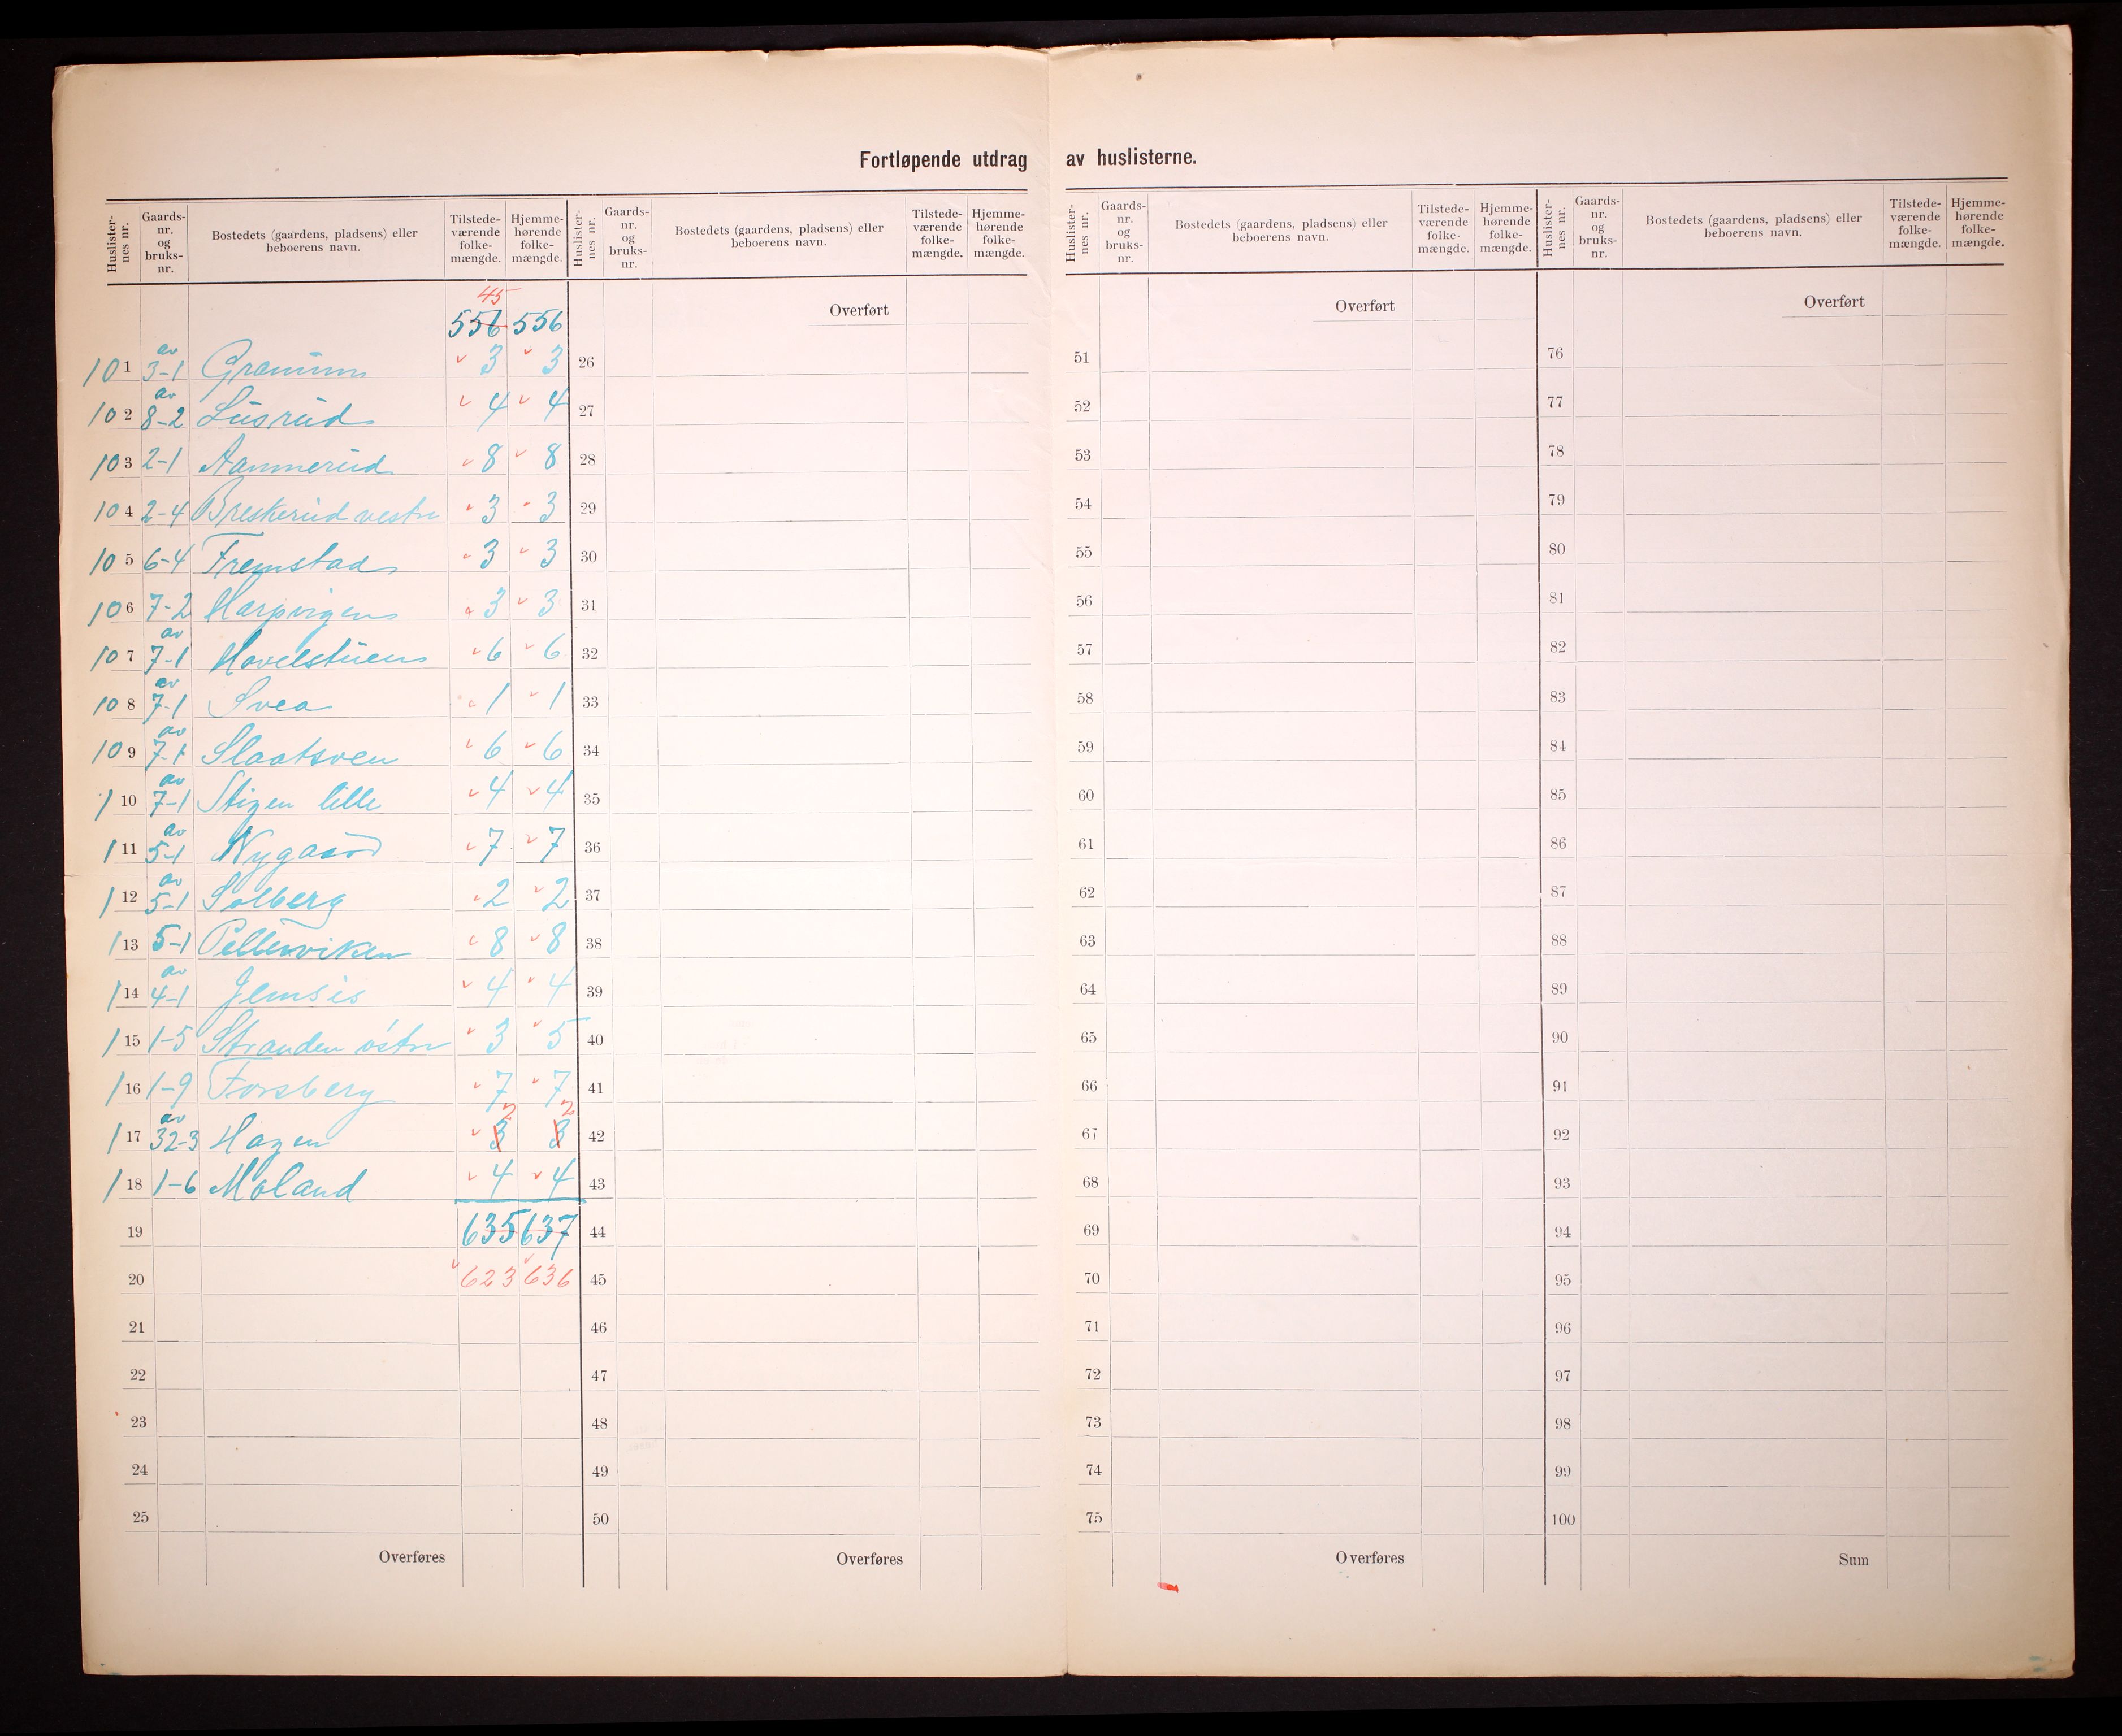 Fortløpende utdrag av huslisterne.
Huslisternes nr. Gaards-nr. og bruks-nr. Bostedets (gaardens, pladsens) eller beboerens navn. Tilstede-værende folke-mængde. Hjemme-hørende folke-mængde.
Huslisternes nr. Gaards-nr. og bruks-nr. Bostedets (gaardens, pladsens) eller beboerens navn. Tilstede-værende folke-mængde. Hjemme-hørende folke-mængde.
Huslisternes nr. Gaards-nr. og bruks-nr. Bostedets (gaardens, pladsens) eller beboerens navn. Tilstede-værende folke-mængde. Hjemme-hørende folke-mængde.
Huslisternes nr. Gaards-nr. og bruks-nr. Bostedets (gaardens, pladsens) eller beboerens navn. Tilstede-værende folke-mængde. Hjemme-hørende folke-mængde.
45
556 556 Overført Overført Overført
101 av 3-1 Granum 3 3 26 51 76
102 av 8-2 Lusrud 4 4 27 52 77
103 2-1 Aammerud 8 8 28 53 78
104 2-4 Breskerud vestre 3 3 29 54 79
105 6-4 Fremstad 3 3 30 55 80
106 7-2 Harpvigen 3 3 31 56 81
107 av 7-1 Hovelstuen 6 6 32 57 82
108 av 7-1 Svea 1 1 33 58 83
109 av 7-1 Slaatsveen 6 6 34 59 84
110 av 7-1 Stigen lille 4 4 35 60 85
111 av 5-1 Nygaard 7 7 36 61 86
112 av 5-1 Solberg 2 2 37 62 87
113 5-1 Pellerviken 8 8 38 63 88
114 av 4-1 4 4 39 64 89
115 1-5 Stranden østre 3 5 40 65 90
116 1-9 Forsberg 7 7 41 66 91
2 2
117 av 32-3 Hagen 3 3 42 67 92
118 1-6 Moland 4 4 43 68 93
19 635 637 44 69 94
20 623 636 45 70 95
21 46 71 96
22 47 72 97
23 48 73 98
24 49 74 99
25 50 75 100
Overføres Overføres Overføres Sum